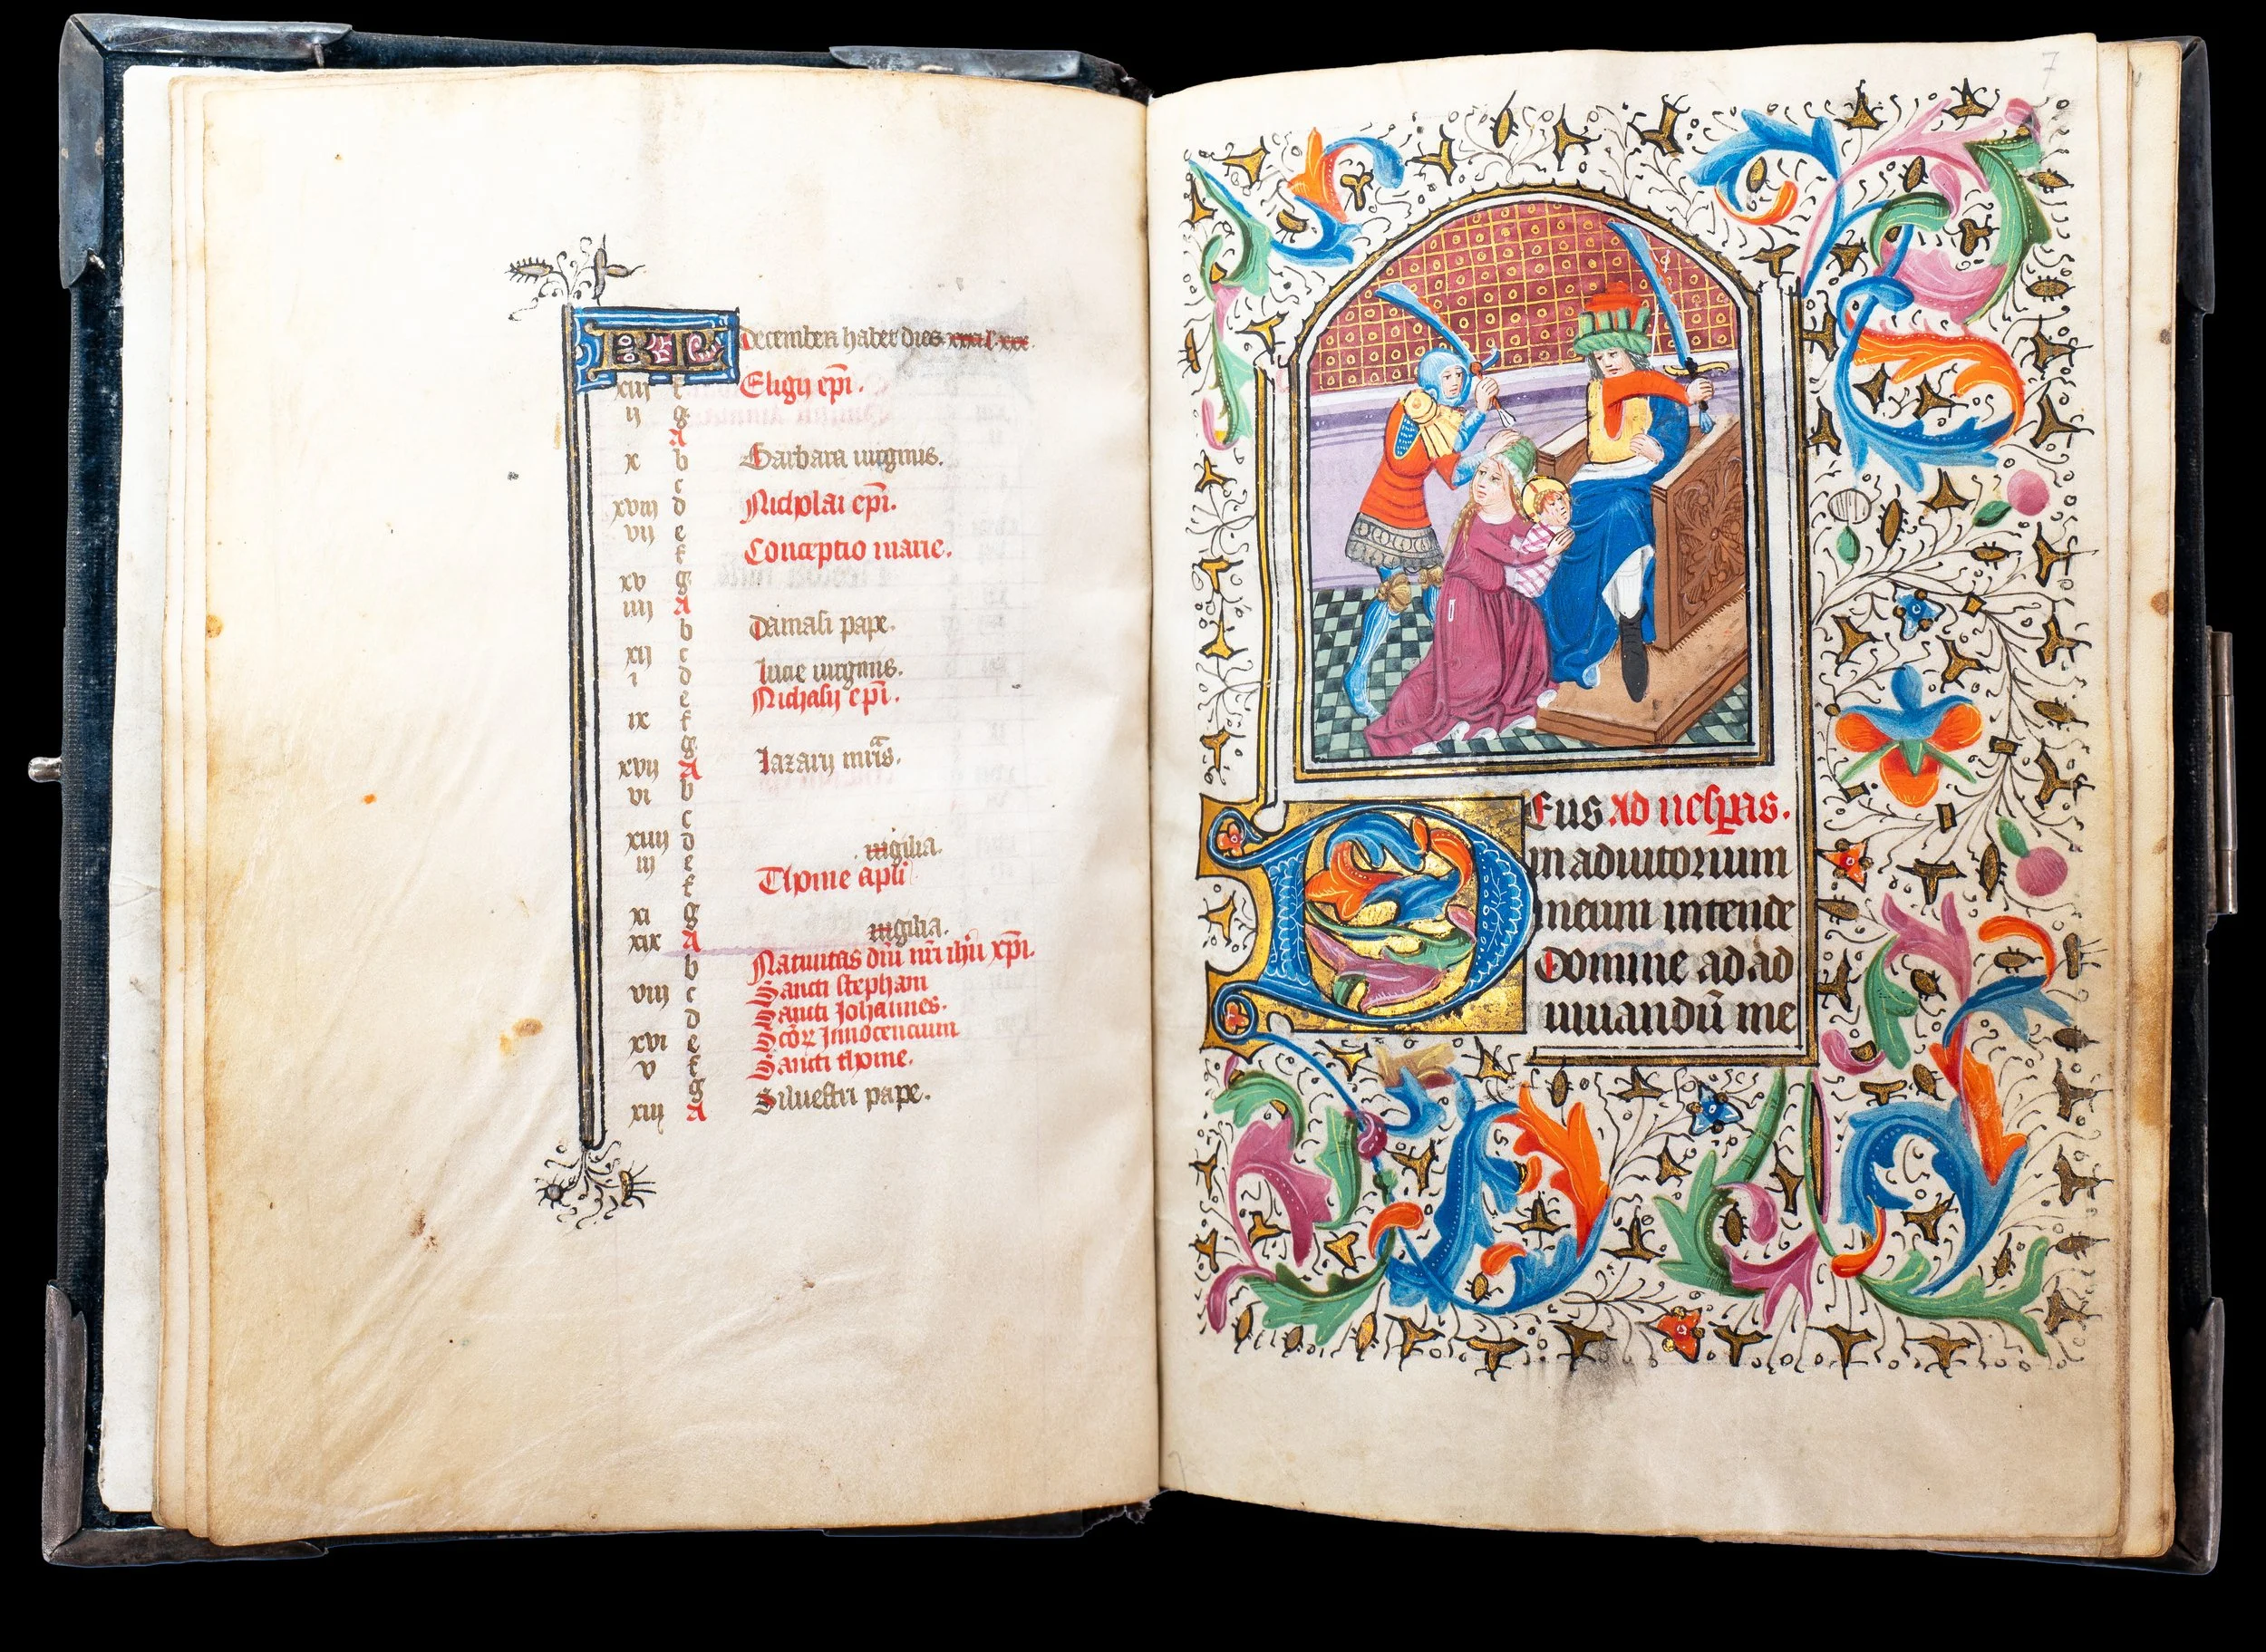 KL December habet dies xxxi l xxx.
xiii f Eligii epi.
ii g
A
x b Barbara uirginis.
c
xviii d Nicholai epi.
vii e
f Conceptio marie.
xv g
iiii A
b Damasi pape.
xii c
i d lucie uirginis.
e Nichasij epi.
ix f
g
xvij A lazarij mris.
vi b
c
xiiij d uigilia.
iij e Thome apli
f
xi g
xix A uigilia.
b Natiuitas dni nri ihu xpi.
viij c Sancti stephani
d Sancti Johannes.
xvi e Scoꝝ Innocencium
v f Sancti thome.
g
xiij A Siluestri pape.
7
DEus Ad uesꝑas.
in adiutorium
meum intende
Domine ad ad
iuuandū me